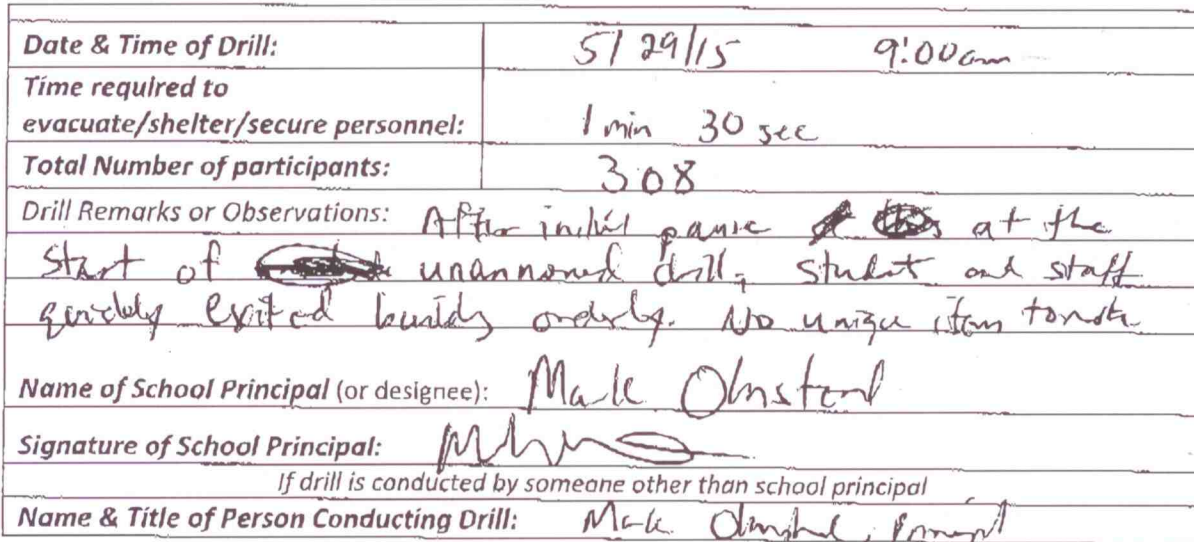 Date & Time of Drill: 5/29/15 9:00am
Time required to
evacuate/shelter/secure personnel: 1 min 30 sec
Total Number of participants: 308
Drill Remarks or Observations: After initial panic at the
start of unannouned drill, student and staff
quickly exited buildg orderly. No unique item to note
Name of School Principal (or designee): Mark Olmstead
Signature of School Principal:
If drill is conducted by someone other than school principal
Name & Title of Person Conducting Drill: Mark Olmstead, Principal